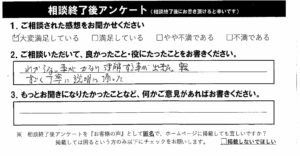 相談終了後アンケート (相談終了後にお書き頂けると幸いです)
1.ご相談された感想をお聞かせください
☑大変満足している □満足している □やや不満である □不満である
2.ご相談いただいて、良かったこと・役にたったことをお書きください。
わからない事がかなり理解する事が出来た。
すごく丁寧に説明し
3.もっとお聞きになりたかったことなど、何かご意見があればお書きください。
※ 相談終了後アンケートを『お客様の声』として匿名で、ホームページに掲載しても宜しいですか?
掲載しては困るという方のみ以下にチェックをお願いします。 □掲載しないでほしい